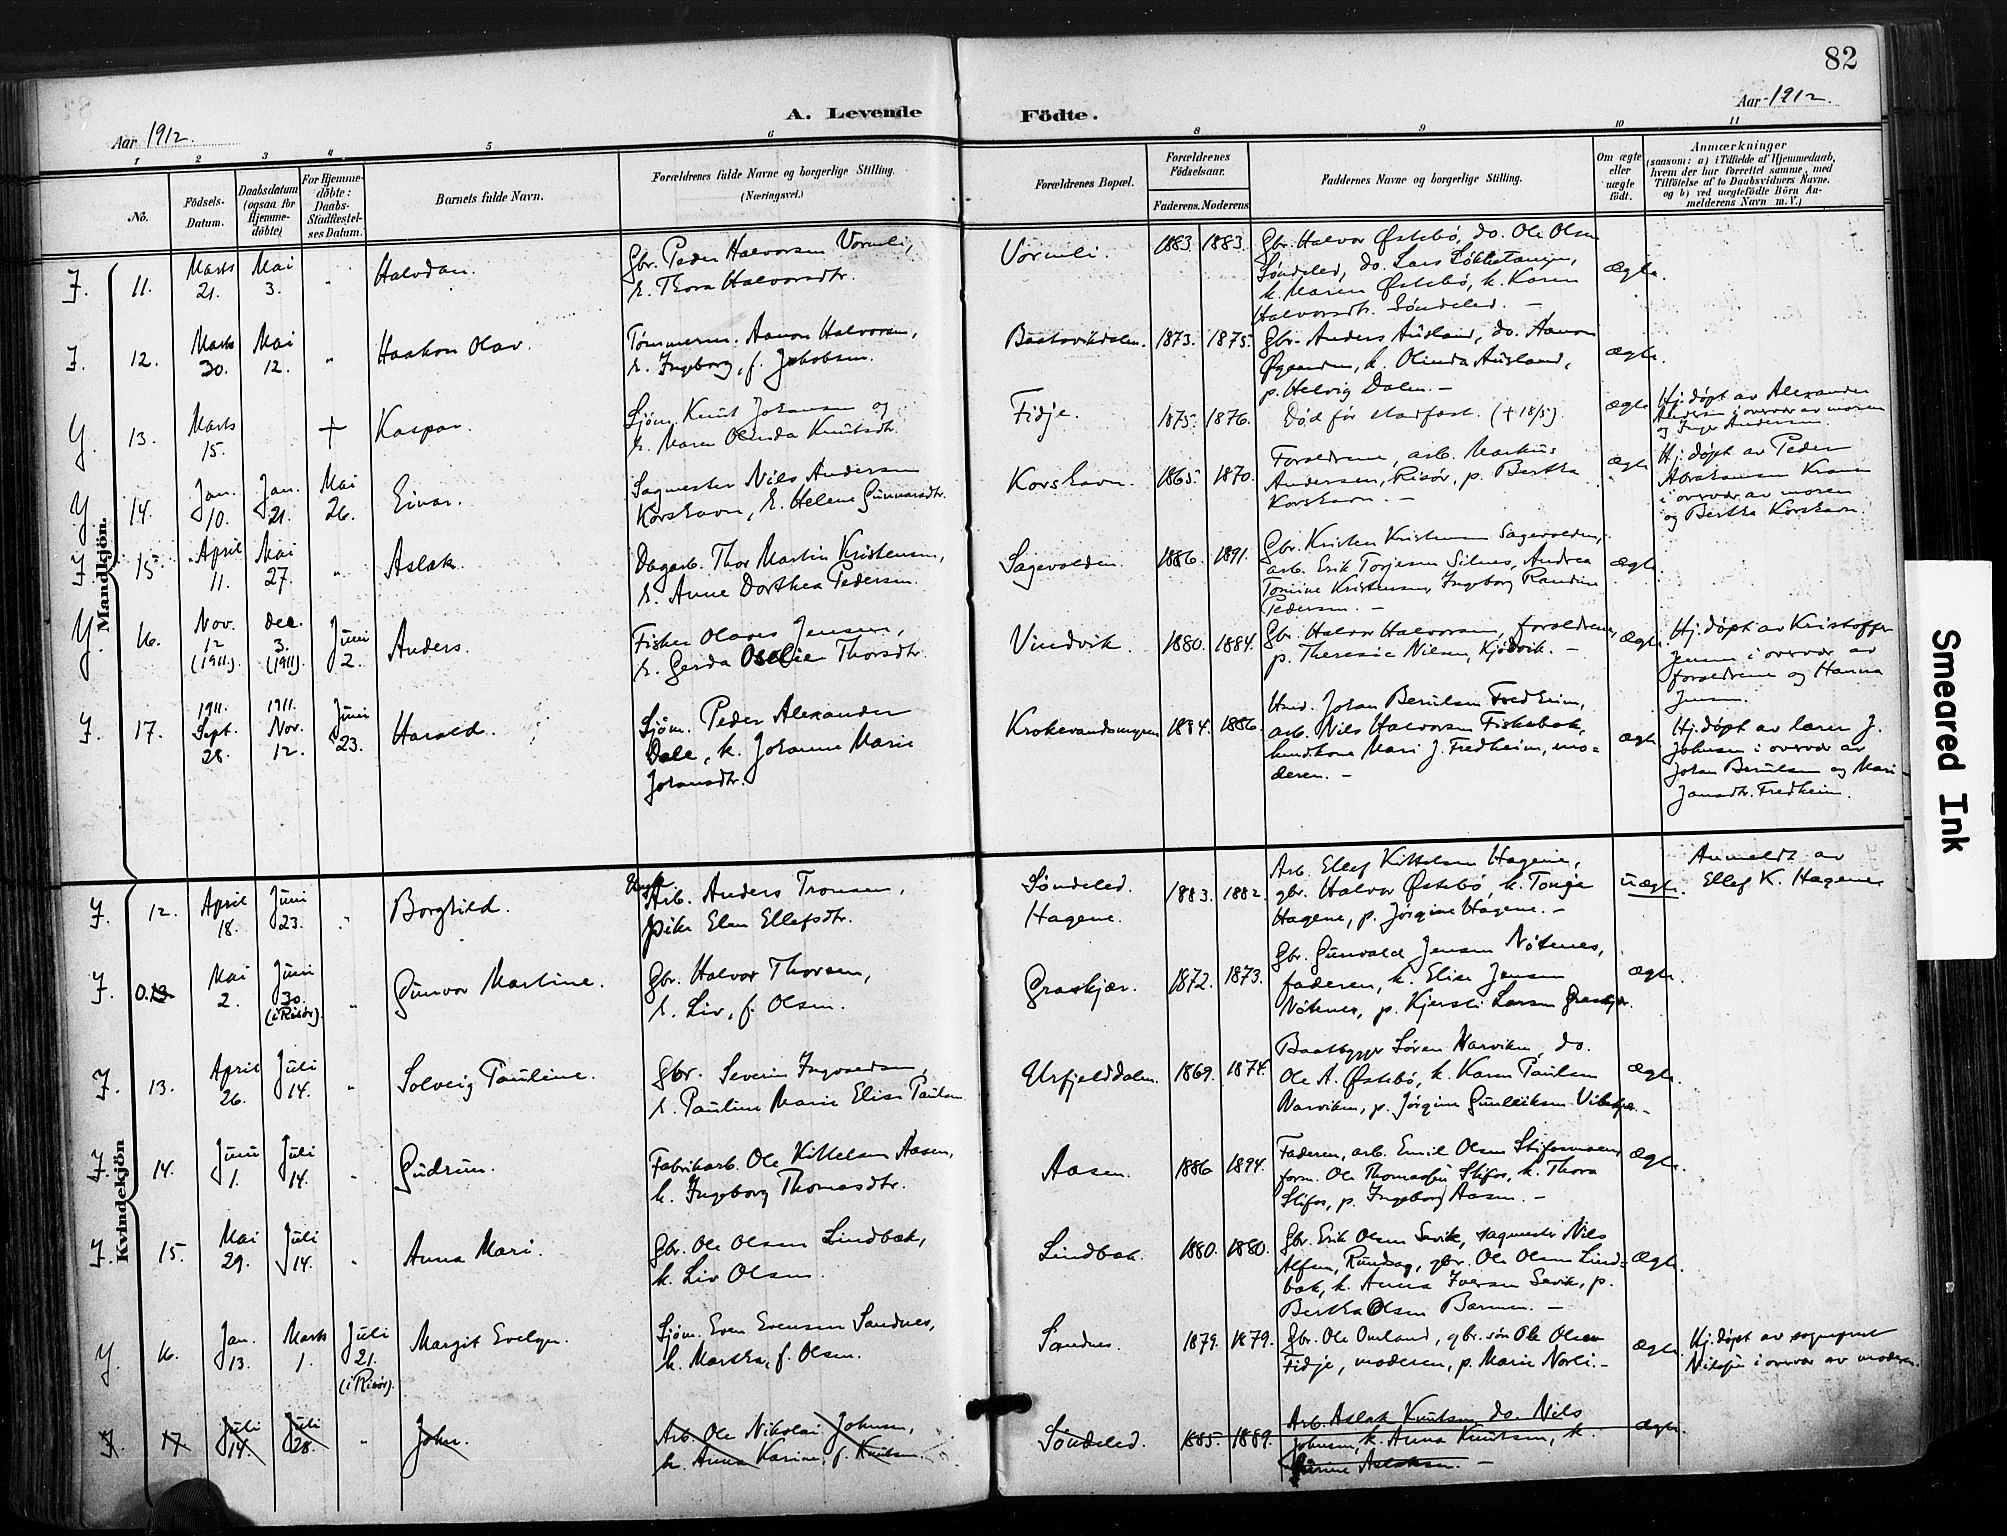 82
Aar 1912.
A. Levende Födte.
Aar 1912.
1 2 3 4 5 6 8 9 10 11
No.
Födsels-Datum.
Daabsdatum (ogsaa for Hjemme-döbte)
For Hjemme-döbte: Daabs-Stadfæstel-ses Datum.
Barnets fulde Navn.
Forældrenes fulde Navne og borgerlige Stilling. (Næringsvei.)
Forældrenes Bopæl.
Forældrenes Födselsaar.
Faderens. Moderens
Faddernes Navne og borgerlige Stilling.
Om ægte eller uægte födt.
Anmærkninger
(saasom: a) i Tilfælde af Hjemmedaab, hvem der har forrettet samme, med Tilföielse af to Daabsvidners Navne, og b) ved uægtefödte Börn An-melderens Navn m. V.)
Mandkjön.
J. 11. Marts 21. Mai 3. " Halvdan.
Gbr. Peder Halvorsen Vormli,
k. Thora Halvorsdtr.
Vormli. 1883 1883.
Gbr. Halvor Østebø, do. Ole Olsen
Søndeled, do. Lars
k. Maren Østebø, k. Karen
Halvorsdtr. Søndeled. —
Ægte.
J. 12. Marts 30. Mai 12. " Haakon Olav.
Tømmerm. Aanon Halvorsen,
k. Ingeborg, f. Jakobsen.
Baatsvikdalen. 1873. 1875.
Gbr. Anders Ausland, do. Aanon
Øygarden, k. Olinda Ausland,
p. Helvig Dalen. —
Ægte.
Y. 13. Marts 15. + Kaspar.
Sjøm. Knut Johansen og
k. Maren Olinda Knutsdtr.
Fidje. 1875. 1876.
Død før stadfæst. (+ 18/5)
Ægte
Hj. døpt av Alexander
Andersen i overvær av moren
og Inger Andersen.
Y. 14. Jan. 10. Jan. 21. Mai 26. Einar.
Sagmester Nils Andersen
Korshavn, k. Helene Gunvorsdtr.
Korshavn. 1865. 1870.
Forældrene, arb. Markus
Andersen, Risør, p. Bertha
Korshavn. —
Ægte
Hj. døpt av Peder
Abrahamsen
i overvær av moren
og Bertha Korshavn.
J. 15. April 11. Mai 27. " Aslak.
Dagarb. Thor Martin Kristensen,
k. Anne Dorthea Pedersen.
Sagevolden. 1886. 1891.
Gbr. Kristen Kristensen Sagevolden,
arb. Erik Torjesen Silnes, Andrea
Tomine Kristensen, Ingeborg Randine
Pedersen. —
Ægte.
Y. 16. Nov. 12 (1911). Dec. 3. (1911) Juni 2. Anders.
Fisker Olaves Jensen,
k. Gerda Oselie Thorsdtr.
Vindvik. 1880. 1884.
Gbr. Halvor Halvorsen, forældrene,
p. Theresie Nilsen, Kjødvik. —
Ægte.
Hj. døpt av Kristoffer
Jensen i overvær av
forældrene og Hanna
Jensen.
J. 17. 1911. Sept. 28. 1911. Nov. 12. Juni 23. Harald.
Sjøm. Peder Alexander
Dale, k. Johanne Marie
Johansdtr.
Krokevandsmyren 1884. 1886.
Hmd. Johan Berulsen Fredheim,
arb. Nils Halvorsen Fiskebæk,
hmdkone Mari J. Fredheim, mo-
deren. —
Ægte
Hj. døpt av lærer J.
Johnsen i overvær av
Johan Berulsen og Mari
Jansdtr. Fredheim.
Kvindekjön
J. 12. April 18. Juni 23. " Borghild.
Ungk. Arb. Anders Tronsen,
pike Elen Ellefsdtr.
Søndeled.
Hagene. 1883. 1882.
Arb. Ellef Kittelsen Hagene,
gbr. Halvor Østebø, k. Tonje
Hagene, p. Jørgine Hagene. —
Uægte.
Anmeldt av
Ellef K. Hagene
J. 0.13 Mai 2. Juni 30. (i Risør). " Gunvor Martine.
Gbr. Halvor Thorsen,
k. Liv, f. Olsen.
Graskjær. 1872. 1873.
Gbr. Gunvald Jensen Nøtenes,
faderen, k. Elise Jensen
Nøtenes, p. Kjersti Larsen Graskjær.
Ægte.
J. 13. April 26. Juli 14. " Solveig Pauline.
Gbr. Severin Ingvaldsen,
k. Pauline Marie Elise Paulsen
Urfjelddalen. 1869. 1874.
Baatbygger Søren Narviken, do.
Ole A. Østebø, k. Karen Paulsen
Narviken, p. Jørgine Gunleiksen
Ægte.
J. 14. Juni 1. Juli 14. " Gudrun.
Fabrikarb. Ole Kittelsen Aasen,
k. Ingeborg Thomasdtr.
Aasen. 1886 1894.
Faderen, arb. Emil Olsen Stifosmoen,
form. Ole Thomassen Stifos, k. Thora
Stifos, p. Ingeborg Aasen. —
Ægte.
J. 15. Mai 29. Juli 14. " Anna Mari.
Gbr. Ole Olsen Lindbæk,
k. Liv Olsen.
Lindbæk. 1880. 1880.
Gbr. Erik Olsen Savik, sagmester Nils
Alfsen, Rundsag, gbr. Ole Olsen Lind-
bæk, k. Anna Iversen Savik, p.
Bertha Olsen Barmen. —
Ægte.
Y. 16. Jan. 13. Marts 1. Juli 21. (i Risør). Margit Evelyn.
Sjøm. Even Evensen Sandnes,
k. Martha, f. Olsen.
Sandnes. 1879. 1879.
Gbr. Ole Omland, gbr. søn Ole Olsen
Fidje, moderen, p. Marie Norli. —
Ægte
Hj. døpt av sogneprest
Nilssen i overvær av moderen.
J. 17 Juli 14. Juli 28. " John.
Arb. Ole Nikolai Johnsen,
k. Anna Karine, f. Knutsen.
Søndeled. 1885. 1889.
Arb. Aslak Knutsen, do. Nils
Johnsen, k. Anna Knutsen, k.
Aslaksen. —
Ægte.
Smeared Ink